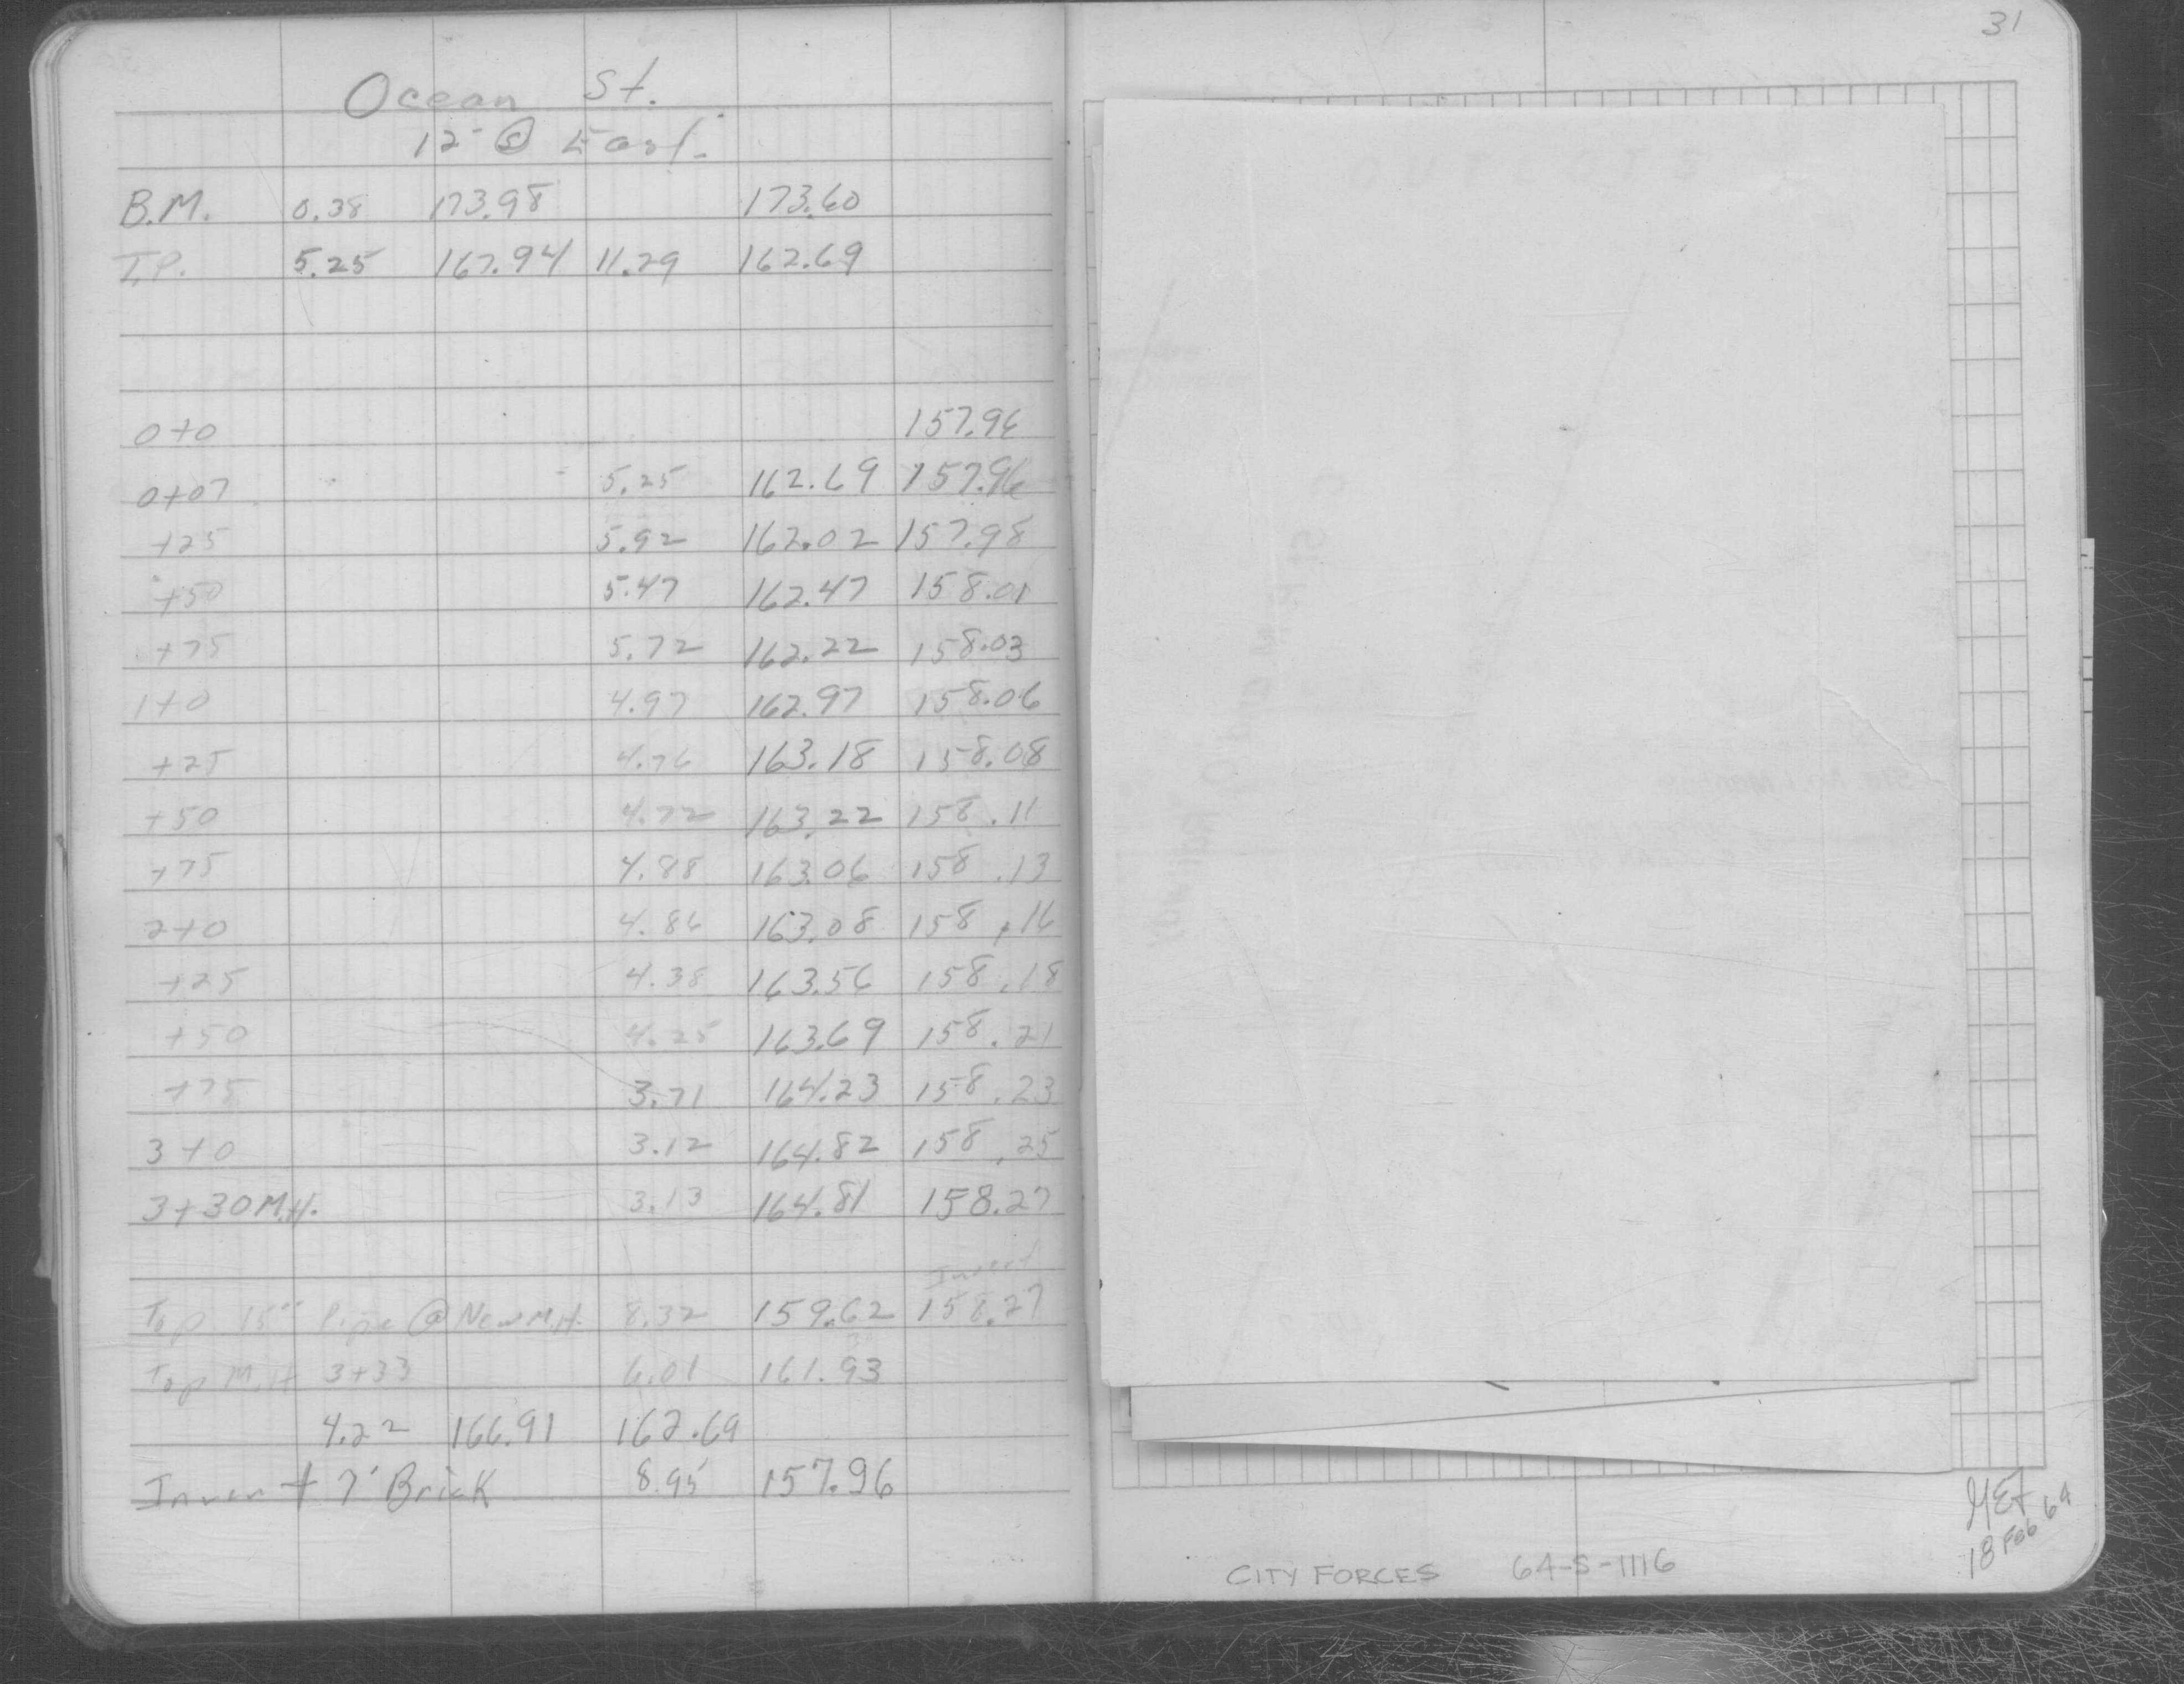 Ocean St.
12" Ⓢ East.
B.M. 0.38 173.98 173.60
T.P. 5.25 167.94 11.29 162.69
0+0 157.96
0+07 5.25 162.69 157.96
+25 5.92 162.02 157.98
+50 5.47 162.47 158.01
+75 5.72 162.22 158.03
1+0 4.97 162.97 158.06
+25 4.76 163.18 158.08
+50 4.72 163.22 158.11
+75 4.88 163.06 158.13
2+0 4.86 163.08 158.16
+25 4.38 163.56 158.18
+50 4.25 163.69 158.21
+75 3.71 164.23 158.23
3+0 3.12 164.82 158.25
3+30 M.H. 3.13 164.81 158.27
Invert
Top 15" Pipe @ New M.H. 8.32 159.62 158.27
Top M.H 3+33 6.01 161.93
4.22 166.91 162.69
Invert 7' Brick 8.95 157.96
31
18 Feb 64
CITY FORCES 64-S-1116